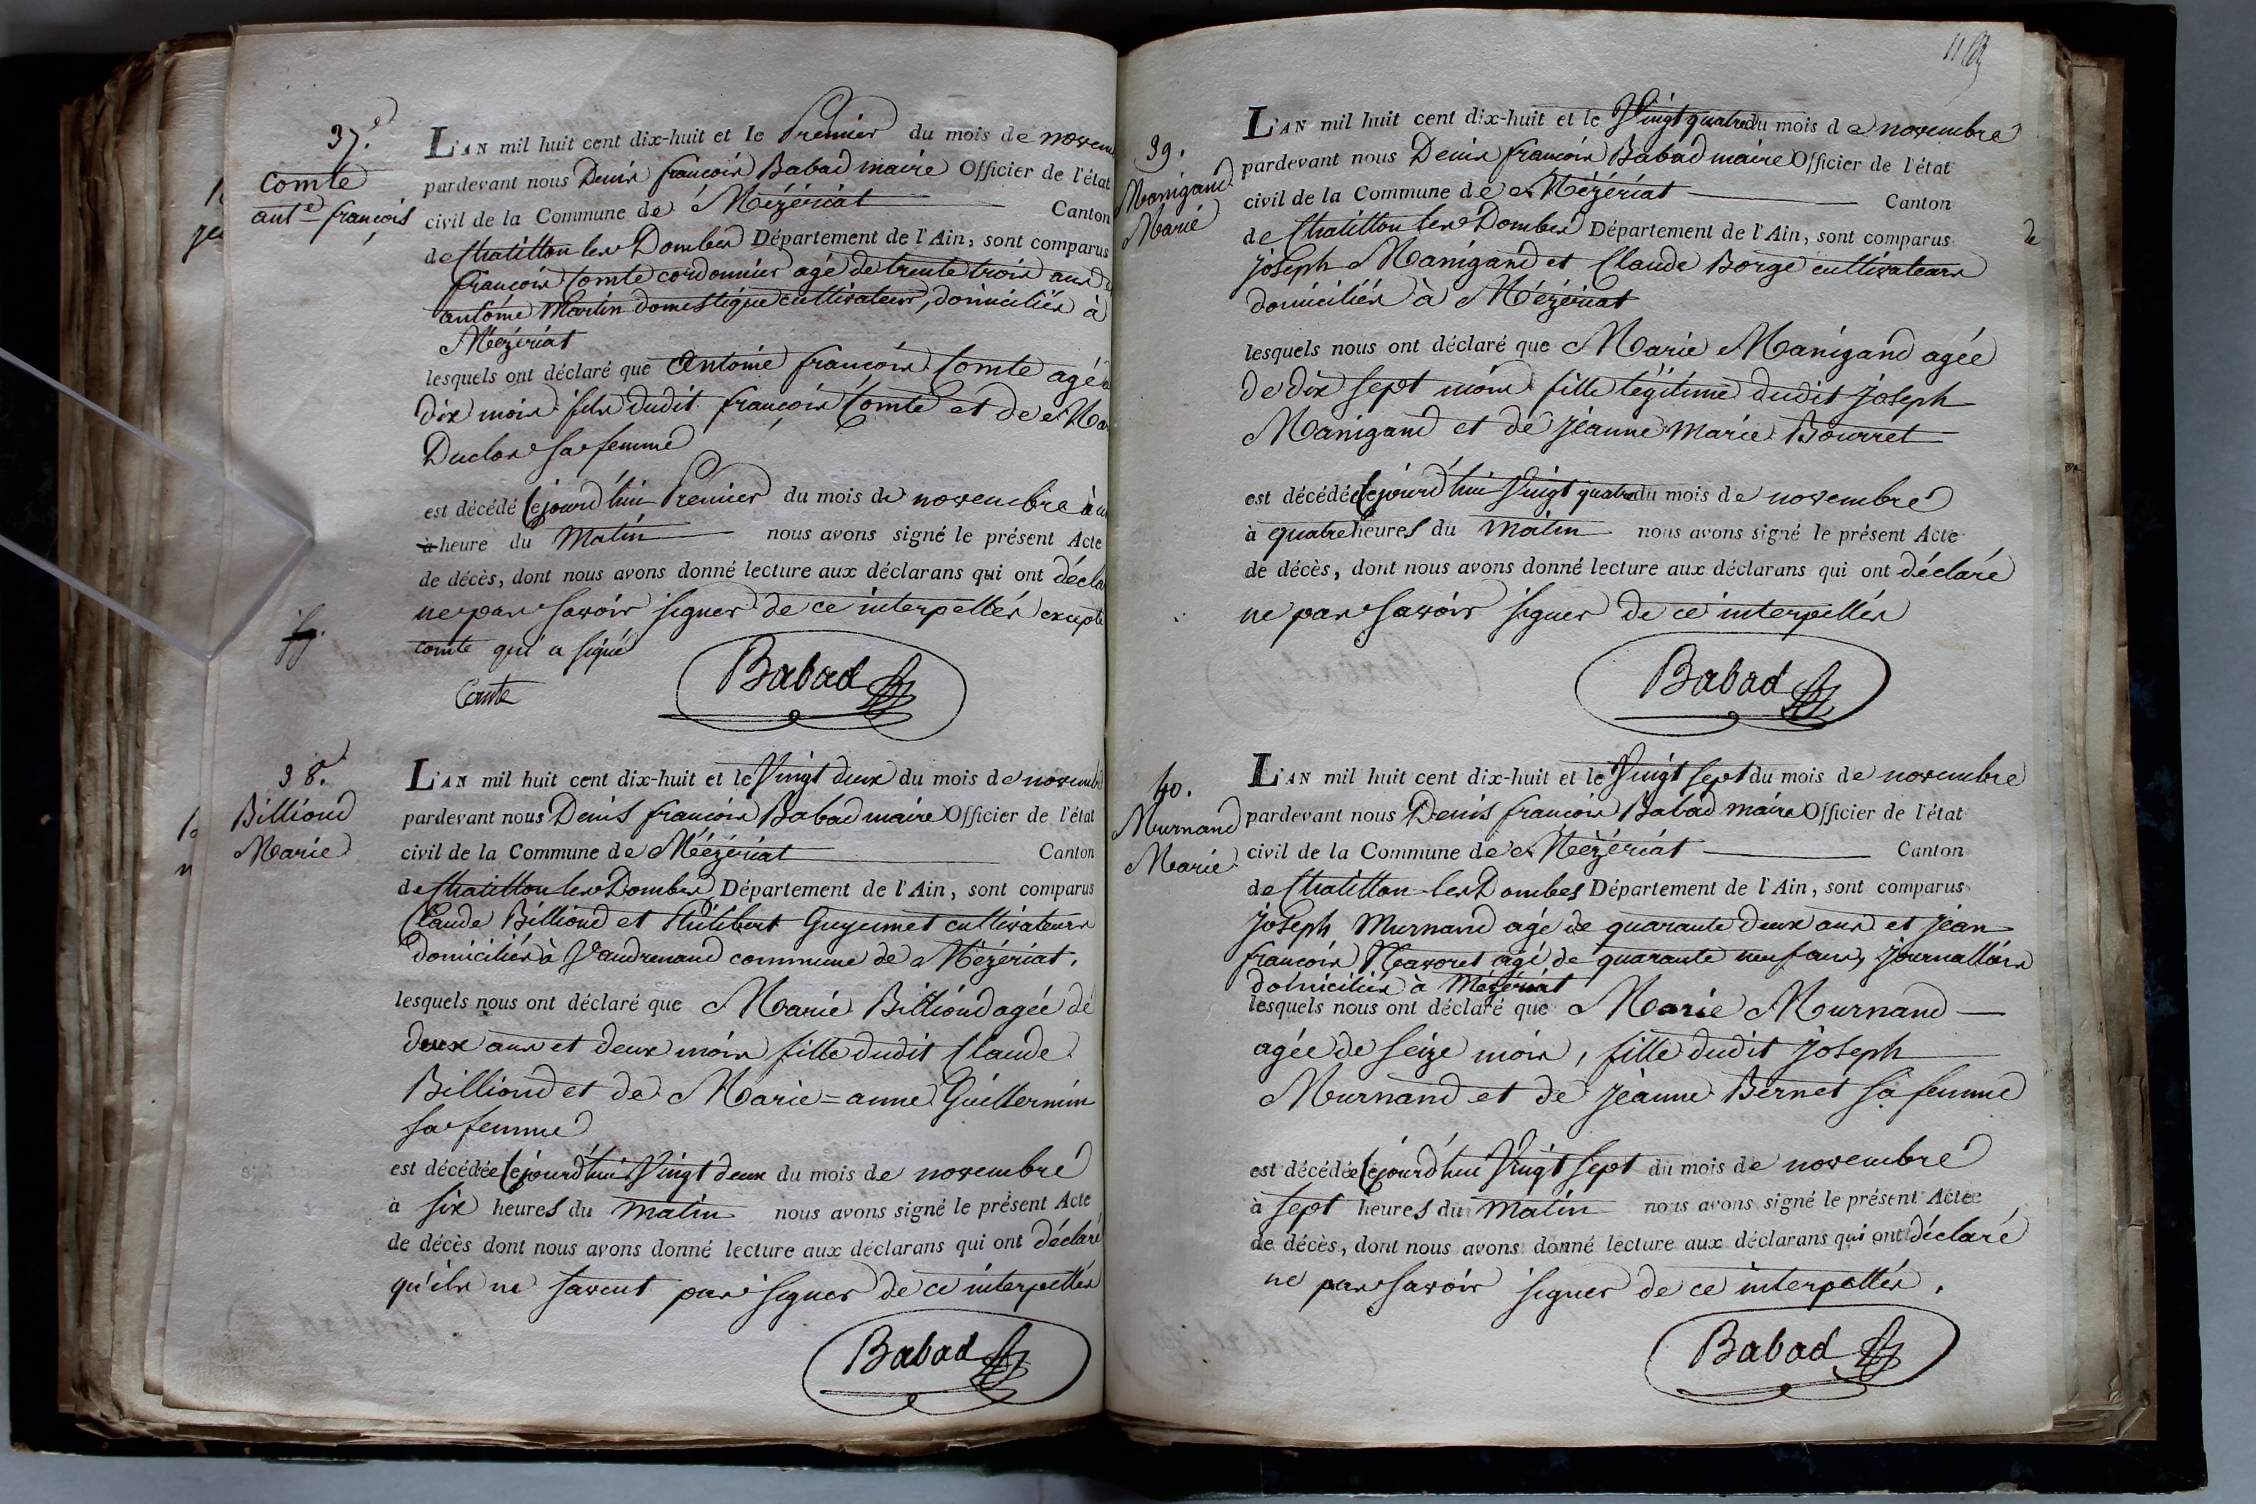 37.e
Comte
ant.e françois
L'AN mil huit cent dix-huit et le Premier du mois de novem
pardevant nous Denis françois Babad maire Officier de l'état
civil de la Commune de Mézériat Canton
de Chatillon les Dombes Département de l'Ain, sont comparus
françois Comte cordonnier agé de trente trois ans
antoine Martin domestique cultivateur, domiciliés à
Mézériat
lesquels ont déclaré que Antoine françois Comte agé
dix mois fils dudit françois Comte et de Ma
Duclos sa femme
est décédé Cejourd'hui Premier du mois de novembre à
à heure du Matin nous avons signé le présent Acte
de décès, dont nous avons donné lecture aux déclarans qui ont décla
ne pas savoir signer de ce interpellés excepté
comte qui a signé
Comte
Babad
38.
Billioud
Marie
L'AN mil huit cent dix-huit et le Vingt deux du mois de novemb
pardevant nous Denis françois Babad maire Officier de l'état
civil de la Commune de Mézériat Canton
de Chatillon les Dombes Département de l'Ain, sont comparus
Claude Billioud et Philibert Guyennet cultivateurs
domiciliés à Vaudrenand commune de Mézériat.
lesquels nous ont déclaré que Marie Billioud agée de
deux ans et deux mois fille dudit Claude
Billioud et de Marie=anne Guillermin
sa femme
est décédée Cejourd'hui Vingt deux du mois de novembre
à six heures du matin nous avons signé le présent Acte
de décès dont nous avons donné lecture aux déclarans qui ont déclaré
qu'ils ne savent pas signer de ce interpellés
Babad
39.
Manigand
Marie
L'AN mil huit cent dix-huit et le Vingt quatre du mois de novembre
pardevant nous Denis françois Babad maire Officier de l'état
civil de la Commune de Mézériat Canton
de Chatillon les Dombes Département de l'Ain, sont comparus
joseph Manigand et Claude Borge cultivateurs
domiciliés à Mézériat
lesquels nous ont déclaré que Marie Manigand agée
de dix sept mois fille légitime dudit joseph
Manigand et de jeanne Marie Bourret
est décédée Cejourd'hui Vingt quatre du mois de novembre
à quatre heures du matin nous avons signé le présent Acte
de décès, dont nous avons donné lecture aux déclarans qui ont déclaré
ne pas savoir signer de ce interpellés
Babad
40.
Murnand
Marie
L'AN mil huit cent dix-huit et le Vingt sept du mois de novembre
pardevant nous Denis françois Babad maire Officier de l'état
civil de la Commune de Mézériat Canton
de Chatillon les Dombes Département de l'Ain, sont comparus
joseph Murnand agé de quarante deux ans et jean
françois Navoret agé de quarante neuf ans, journalliers
domiciliés à Mézériat
lesquels nous ont déclaré que Marie Murnand
agée de seize mois, fille dudit joseph
Murnand et de jeanne Bernet sa femme
est décédée Cejourd'hui Vingt sept du mois de novembre
à sept heures du matin nous avons signé le présent Acte
de décès, dont nous avons donné lecture aux déclarans qui ont déclaré
ne pas savoir signer de ce interpellés.
Babad